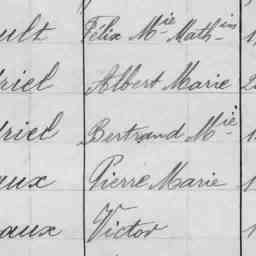 ult Félix Mie Math-in
riel Albert Marie 2
riel Bertrand Mie 1
aux Pierre Marie 1
aux Victor 1